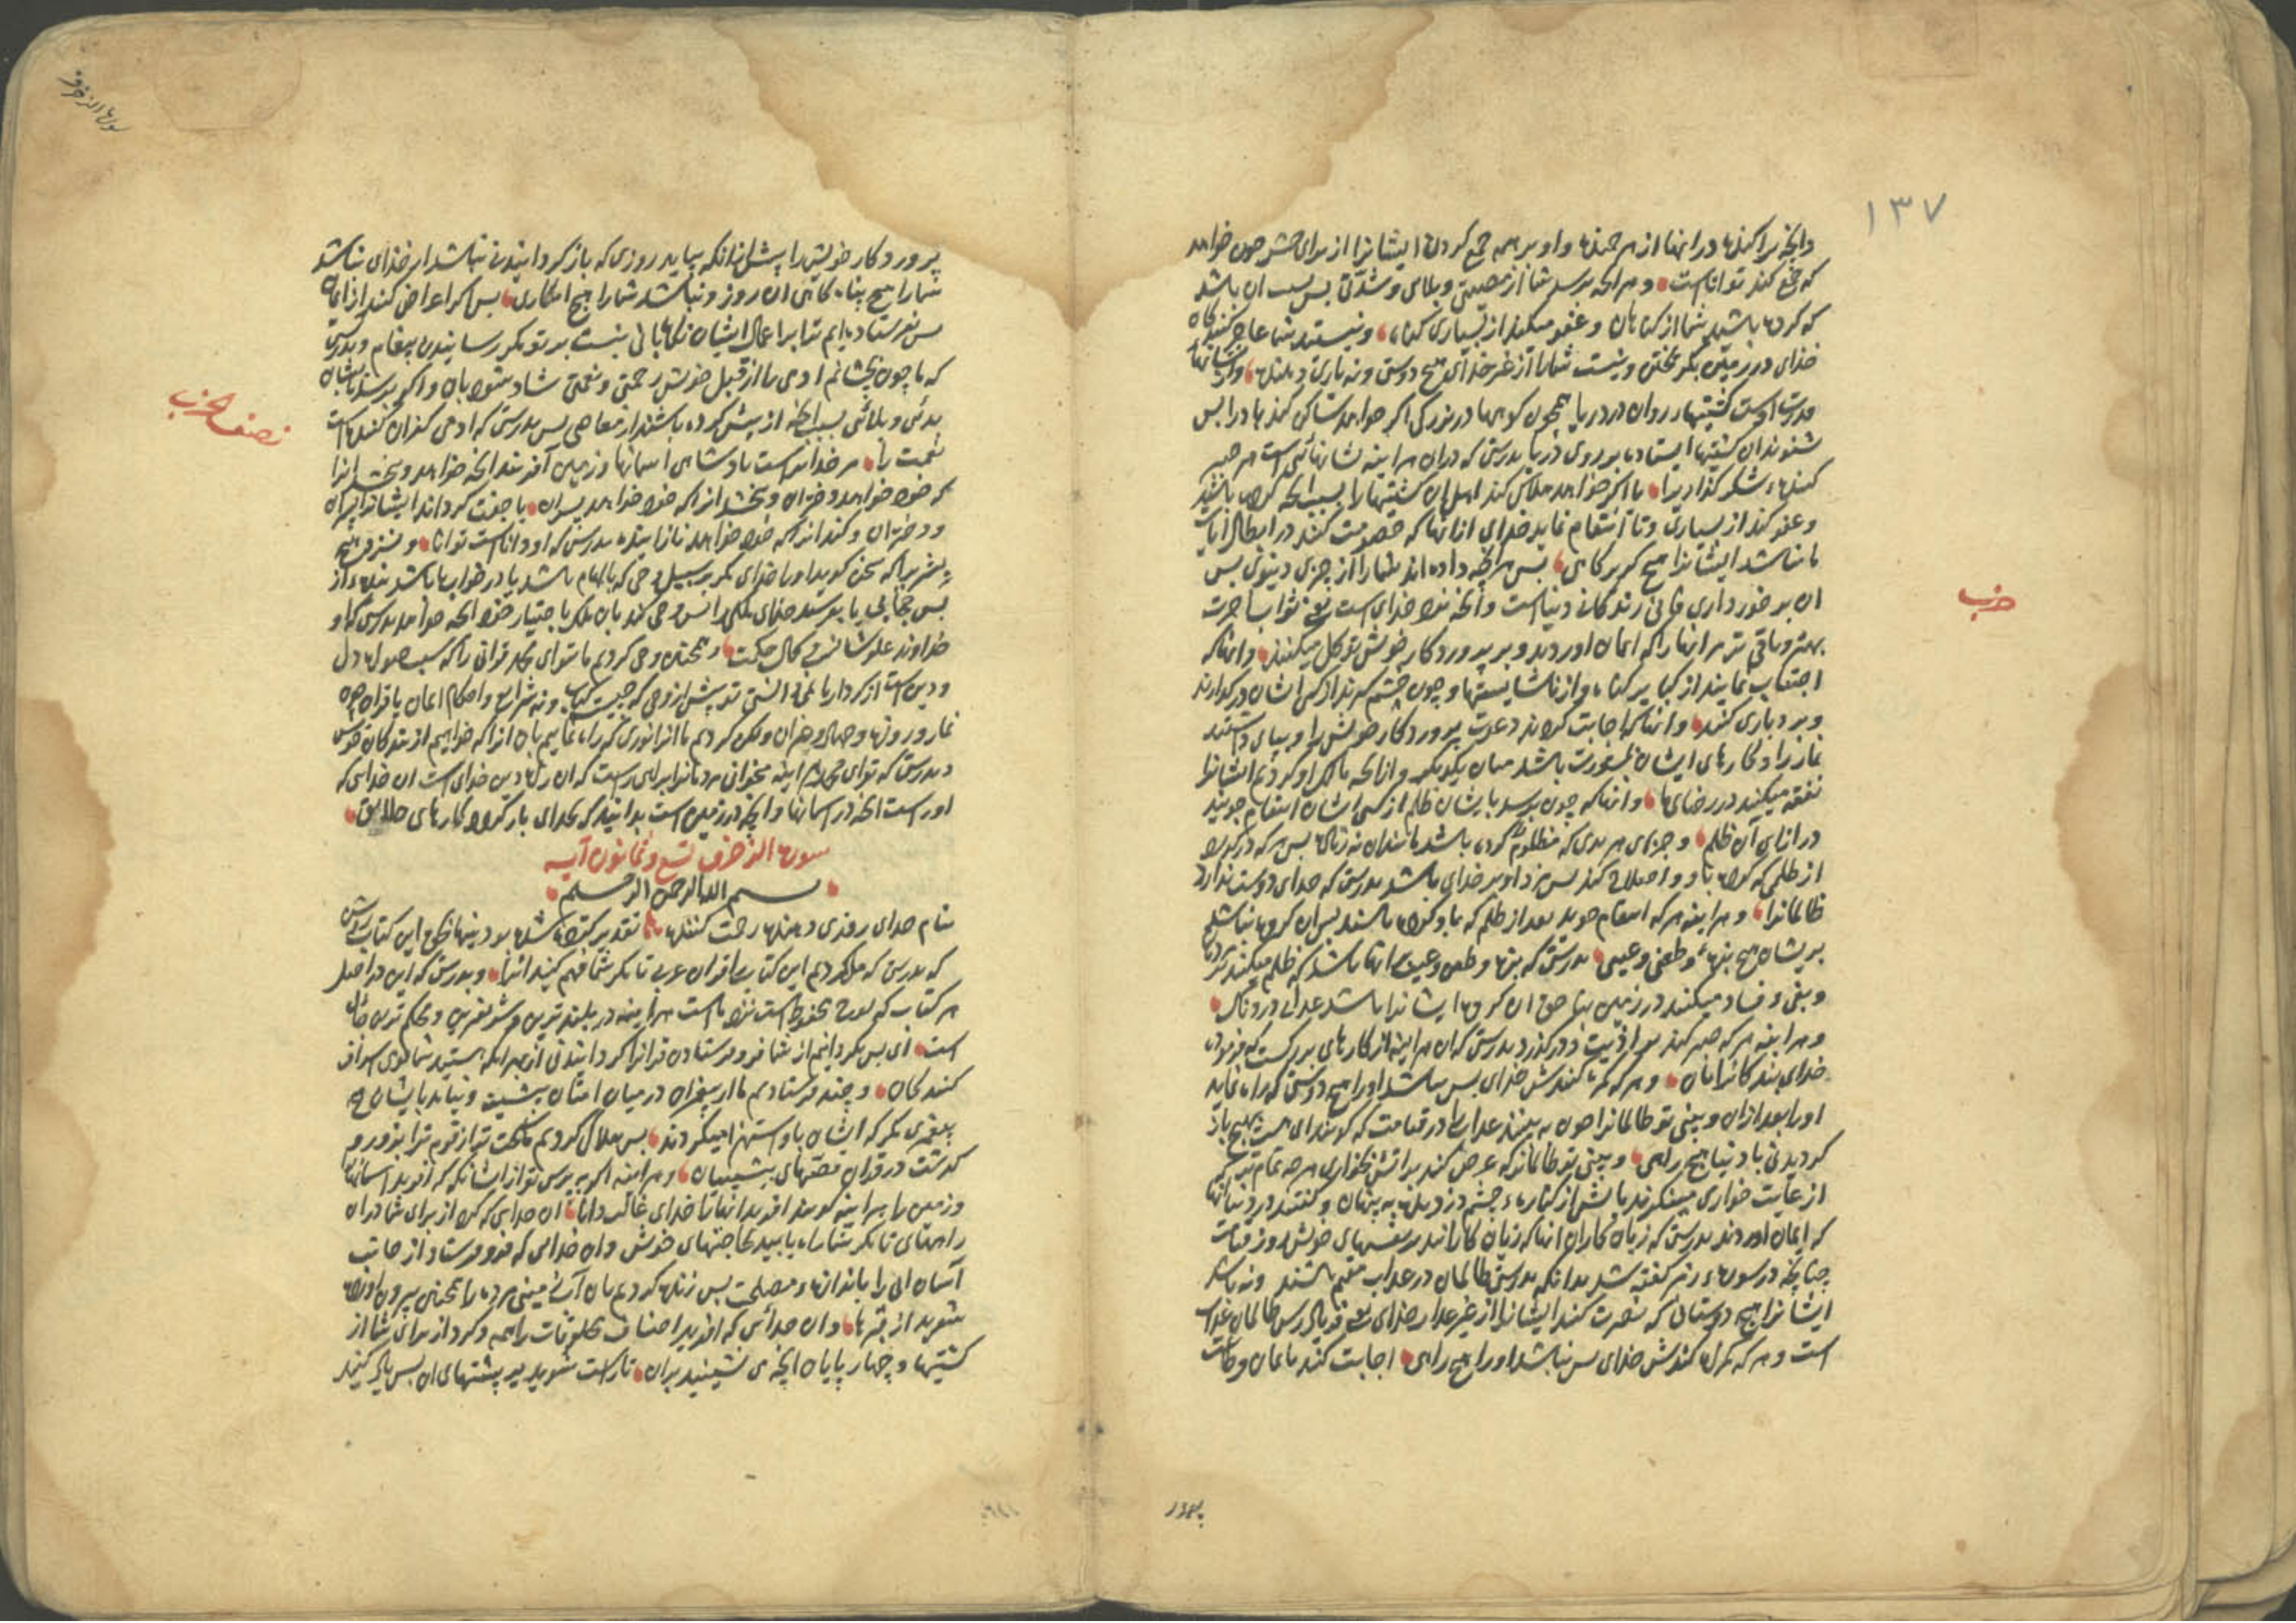 ۱۳۷
وانچه پراکنده در انها از هر جنبنده و او بر همه جمع کردن ایشانرا از برای حشر چون خواهد
که جمع کند تواناست و هر انچه برسد شما از مصیبتی و بلای و شدتی پس بسبب ان باشد
که کرده باشید شما از گناهان و عفو میکند از بسیاری گناه و نیستید شما عاجز کننده
خدای در زمین بگریختن و نیست شمارا از غیر خدای هیچ دوستی و نه یاری دهنده
قدرت اوست کشتیهاء روان در دریا همچون کوهها در بزرگی اکر خواهد ساکن کند بادرا پس
شوند ان کشتیها ایستاده بر روی دریا بدرستی که در ان هراینه نشانهائی است هر صبر
کننده شکر گذاریرا یا اگر خواهد هلاک کند اهل ان کشتیهارا بسبب انچه کرده باشند
وعفو کند از بسیاری و تا انتقام نماید خدای از انها که خصومت کنند در ابطال ایات
ما نباشد ایشانرا هیچ گریزگاهی پس هر انچه داده اند شمارا از چیزی دینوی پس
ان برخورداری فانی زندگانی دنیاست و انچه نزد خدای است یعنی ثواب آخرت
حزب
بهتر و باقی تر مر انها را که ایمان اوردند و بر پروردگار خویش توکل میکنند و انها که
اجتناب نمایند از کبایر گناه و از ناشایستها و چون خشم گیرند از کسی ایشان درگذارند
و بردباری کنند و انها که اجابت کردند دعوت پروردگار خویش را و بپای داشتند
نماز را و کارهای ایشان بمشورت باشد میان یکدیگر و از انچه ما عطا کردیم ایشانرا
نفقه میکنند در رضای ما و انها که چون برسد بایشان ظلم از کسی ایشان انتقام جویند
در ازای آن ظلم و جزای هر بدی که مظلوم کرده باشد مانند ان نه زیاده پس هر که درگذرد
از ظلمی که کرده با او و اصلاح کند پس مزد او بر خدای باشد بدرستی که خدای دوست ندارد
ظالمانرا و هراینه هر که انتقام جوید بعد از ظلم که با او کرده باشند پس ان گروه نباشد
بریشان هیچ بزه و طعنی و عیبی بدرستی که بزه و طعن و عیب بر انها باشد که ظلم میکنند
و بغی و فساد میکنند در زمین بناحق ان گروه ایشانرا باشد عذابی دردناک
و هراینه هر که صبر کند بر اذیت و درگذرد بدرستی که ان هراینه از کارهای بزرگست که فرموده
خدای بندگانرا بان و هر که گمراه کندش خدای پس نباشد اورا هیچ دوستی که راه نماید
اورا بعد ازان و بینی تو ظالمانرا چون به بینند عذاب را در قیامت که گویند ای هست هیچ باز
گردیدنی بادنیا هیچ راهی و بینی تو ظالمانرا که عرض کنند بر اتش بخواری هر چه تمام تر که
از غایت خواری مینگرند باتش از کناره چشم دزدیده به پنهان و گفتند در دنیا انها
که ایمان اوردند بدرستی که زیان کاران انها که زیان کارانند بر نفسهای خویش روز قیامت
چنانچه در سوره زمر گفته شد بدانکه بدرستی ظالمان در عذاب مقیم باشند و نه باشد
ایشانرا هیچ دوستانی که نصرت کنند ایشانرا از غیر خدای
است و هر که گمراه کندش خدای پس نباشد اورا هیچ راهی اجابت کنید بایمان و طاعت
پرورد
سورة الزخرف
پروردگار خویش را پیش از انکه بیاید روزی که باز گردانیدنی نباشد از خدای نباشد
شمارا هیچ پناه گاهی ان روز و نباشد شمارا هیچ انکاری پس اگر اعراض کنند از ایمان
پس نفرستاده ایم ترا بر اعمال ایشان نگاهبانی نیست بر تو مگر رسانیدن پیغام و بدرستی
که ما چون بچشانیم ادمی را از قبل خویش رحمتی و نعمتی شاد شود بان و اگر برسد بایشان
نصف حزب
بدئی و بلائی بسبب انچه از پیش کرده باشند از معاصی پس بدرستی که ادمی کفران کننده است
نعمت را مر خدایراست پادشاهی اسمانها و زمین آفریند انچه خواهد و بخشد انرا
که خود خواهد دختران و بخشد انرا که خود خواهد پسران یا جفت گرداند ایشانرا پسران
و دختران و کند انرا که خود خواهد نازاینده بدرستی که او داناست توانا و نسزد هیچ
بشریرا که سخن گوید اورا خدای مگر بر سبیل وحی که بالهام باشد یا در خواب یا باشد بنده از
پس حجابی یا بفرستد خدای ملکی را پس وحی کند بان ملک باختیار خود انچه خواهد بدرستی که او
خداوند علو شانست و کمال حکمت و همچنین وحی کردیم ما بتو ای محمد قرانی را که سبب حیوة دل
و دین است از کردار ما نمی دانستی تو پیش از وحی که چیست کتاب و نه شرایع و احکام ایمان یا قران چون
نماز و روزه و جهاد و جز ان ولکن کردیم ما انرا نوری که راه نماییم بان انرا که خواهیم از بندگان خویش
و بدرستی که تو ای محمد هراینه میخوانی مردمانرا براهی راست که ان راه دین خدای است ان خدای که
اوراست انچه در اسمانها و انچه در زمین است بدانید که بخدای باز گردد کارهای خلایق
سورة الزخرف تسع و ثمانون آیه
بسم الله الرحمن الرحیم
بنام خدای روزی دهنده رحمت کننده تقدیر کرده شده بودنیها بحق این کتاب روشن
که بدرستی که ما کردیم این کتاب را قران عربی تا مگر شما فهم کنید انرا و بدرستی که این در اصل
هر کتاب که لوح محفوظ است نزد ما است هراینه در بلند ترین و شریفترین و محکم ترین
است ای پس بگردانیم از شما فرو فرستادن قرانرا گردانیدنی از بهر انکه هستید شما قومی اسراف
کنندگان و چند فرستادیم ما از پیغمبران در میان امتان پیشین و نیامد بایشان هیچ
پیغمبری مگر که ایشان باو استهزا میکردند پس هلاک کردیم ما سخت تر از قوم ترا بزور و
گذشت در قران قصهای پیشینیان و هراینه اگر به پرسی تو از ایشانکه که افرید اسمانها
و زمین را هراینه گویند افرید انها را خدای غالب دانا ان خدایی که کرد از برای شما در ان
راههای تا مگر شما راه یابید بحاجتهای خویش وان خدای که فرو فرستاد از جانب
آسمان ابی را باندازه مصلحت پس زنده کردیم بان آب زمینی مرده را همچنین بیرون اورده
شوید از قبرها و ان خدائی که افرید اصناف مخلوقات را همه و کرد از برای شما از
کشتیها و چهار پایان انچه می نشینید بران تا راست شوید بر پشتهای ان پس یاد کنید